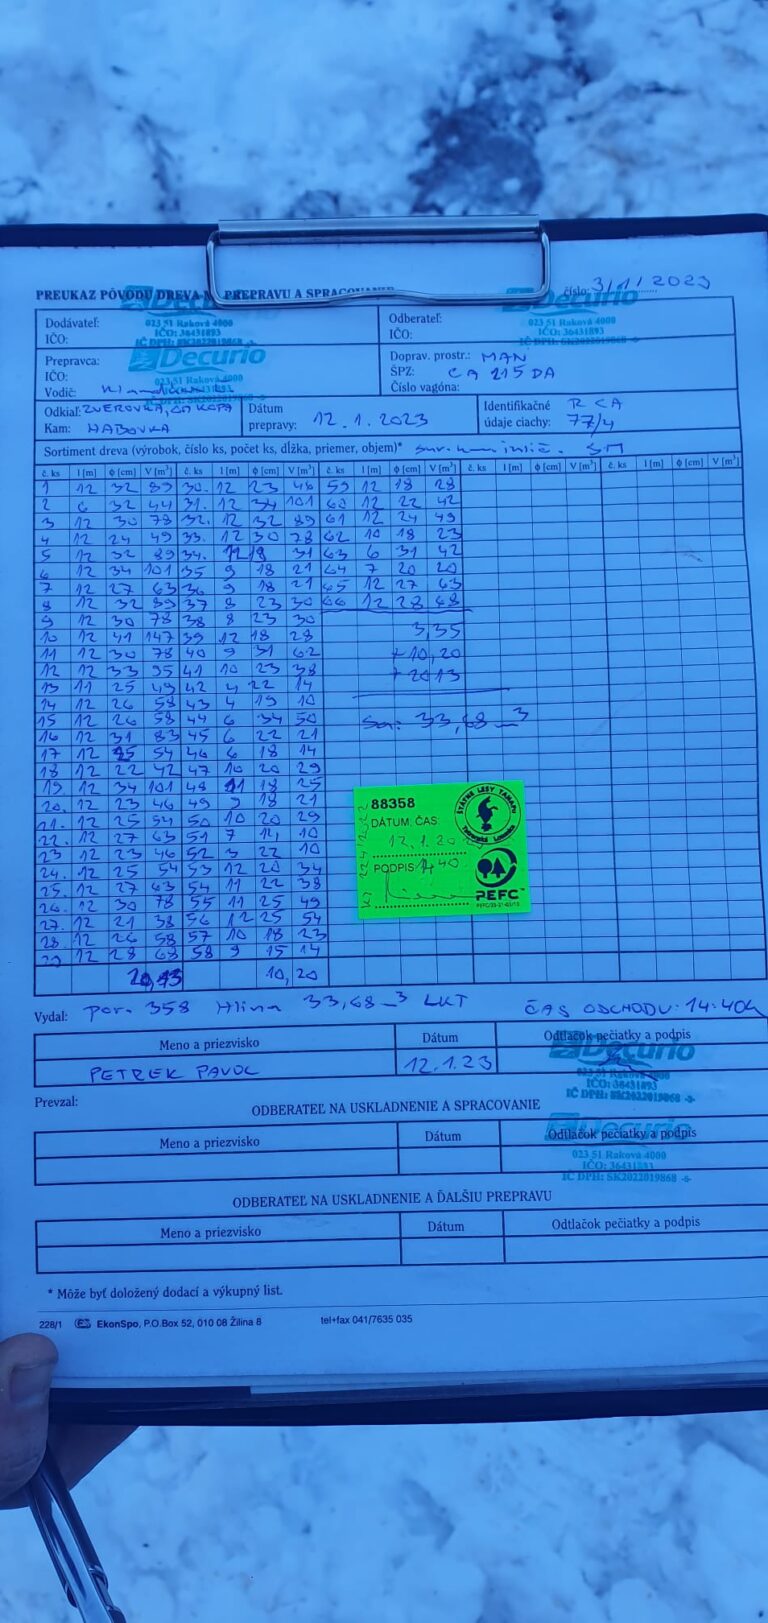 PREUKAZ PÔVODU DREVA NA PREPRAVU A SPRACOVANIE
číslo: 3/1/2023
Decurio
Decurio
Dodávateľ:
IČO:
023 51 Raková 4000
IČO: 36431893
IČ DPH: SK2022019868 -8-
Odberateľ:
IČO:
023 51 Raková 4000
IČO: 36431893
Prepravca:
IČO:
Vodič:
Decurio
023 51 Raková 4000
Doprav. prostr.: MAN
ŠPZ: CA 215 DA
Číslo vagóna:
Odkiaľ: ZVEROVKA,
Kam: HABOVKA
Dátum
prepravy: 12.1.2023
Identifikačné R CA
údaje ciachy: 77/4
Sortiment dreva (výrobok, číslo ks, počet ks, dĺžka, priemer, objem)* SM
č. ks l [m] ϕ [cm] V [m³] č. ks l [m] ϕ [cm] V [m³] č. ks l [m] ϕ [cm] V [m³] č. ks l [m] ϕ [cm] V [m³] č. ks l [m] ϕ [cm] V [m³]
1 12 32 89 30. 12 23 46 59 12 18 28
2 6 32 44 31. 12 34 101 60 12 22 42
3 12 30 78 32. 12 32 89 61 12 24 49
4 12 24 49 33. 12 30 78 62 10 18 23
5 12 32 89 34. 12 19 31 63 6 31 42
6 12 34 101 35 9 18 21 64 7 20 20
7 12 27 63 36 9 18 21 65 12 27 63
8 12 32 89 37 8 23 30 66 12 28 68
9 12 30 78 38 8 23 30
10 12 41 147 39 12 18 28 3,35
11 12 30 78 40 9 31 62 + 10,20
12 12 33 95 41 10 23 38 + 20 13
13 11 25 49 42 4 22 14
14 12 26 58 43 4 19 10
15 12 26 58 44 6 34 50 Sa: 33,68 m3
16 12 31 83 45 6 22 21
17 12 25 54 46 6 18 14
18 12 22 42 47 10 20 29
19 12 34 101 48 11 18 25
20. 12 23 46 49 9 18 21
21. 12 25 54 50 10 20 29
22. 12 27 63 51 7 14 10
23 12 23 46 52 3 22 10
24. 12 25 54 53 12 20 34
25. 12 27 63 54 11 22 38
26. 12 30 78 55 11 25 49
27. 12 21 38 56 12 25 54
28. 12 26 58 57 10 18 23
29 12 28 68 58 9 15 14
20,13 10,20
88358
DÁTUM, ČAS:
12.1.20
PODPIS: 14 40
ŠTÁTNE LESY TANAPU
Tatranská Lomnica
PEFC
Vydal: por. 358 Hlina 33,68 m3 LKT ČAS ODCHODU: 14:40h
Meno a priezvisko Dátum Odtlačok pečiatky a podpis
PETREK PAVOL 12.1.23
Decurio
IČO: 36431893
IČ DPH: SK2022019868 -8-
Prevzal:
ODBERATEĽ NA USKLADNENIE A SPRACOVANIE
Meno a priezvisko Dátum Odtlačok pečiatky a podpis
Decurio
023 51 Raková 4000
IČO: 36431893
IČ DPH: SK2022019868 -8-
ODBERATEĽ NA USKLADNENIE A ĎALŠIU PREPRAVU
Meno a priezvisko Dátum Odtlačok pečiatky a podpis
* Môže byť doložený dodací a výkupný list.
228/1 EkonSpo, P.O.Box 52, 010 08 Žilina 8 tel+fax 041/7635 035